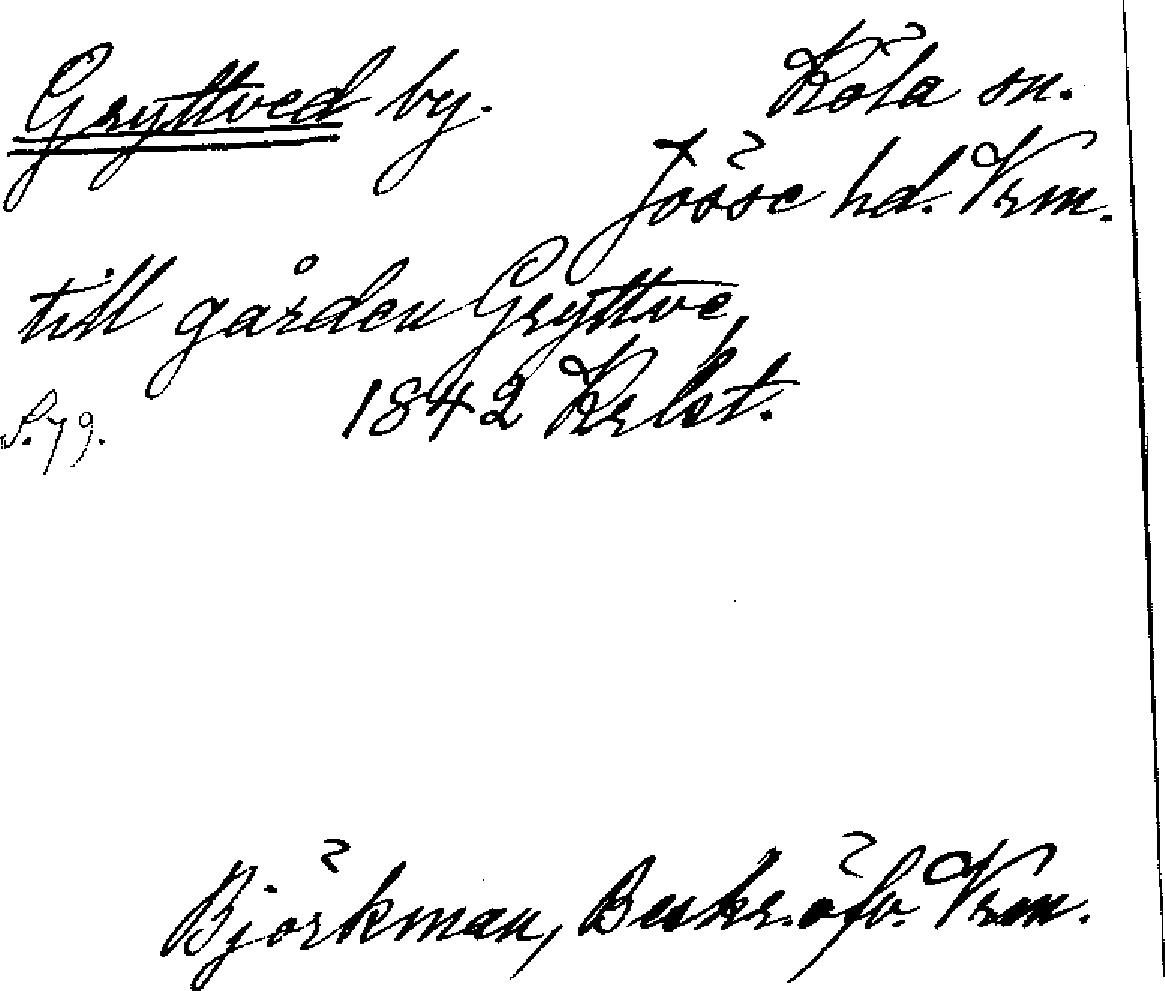 Gryttved by. Köla sn.
Jösse hd. Vrm.
till gården Gryttve,
S. 79. 1842 Krlst.
Björkman, Beskr. öfv. Vrm.